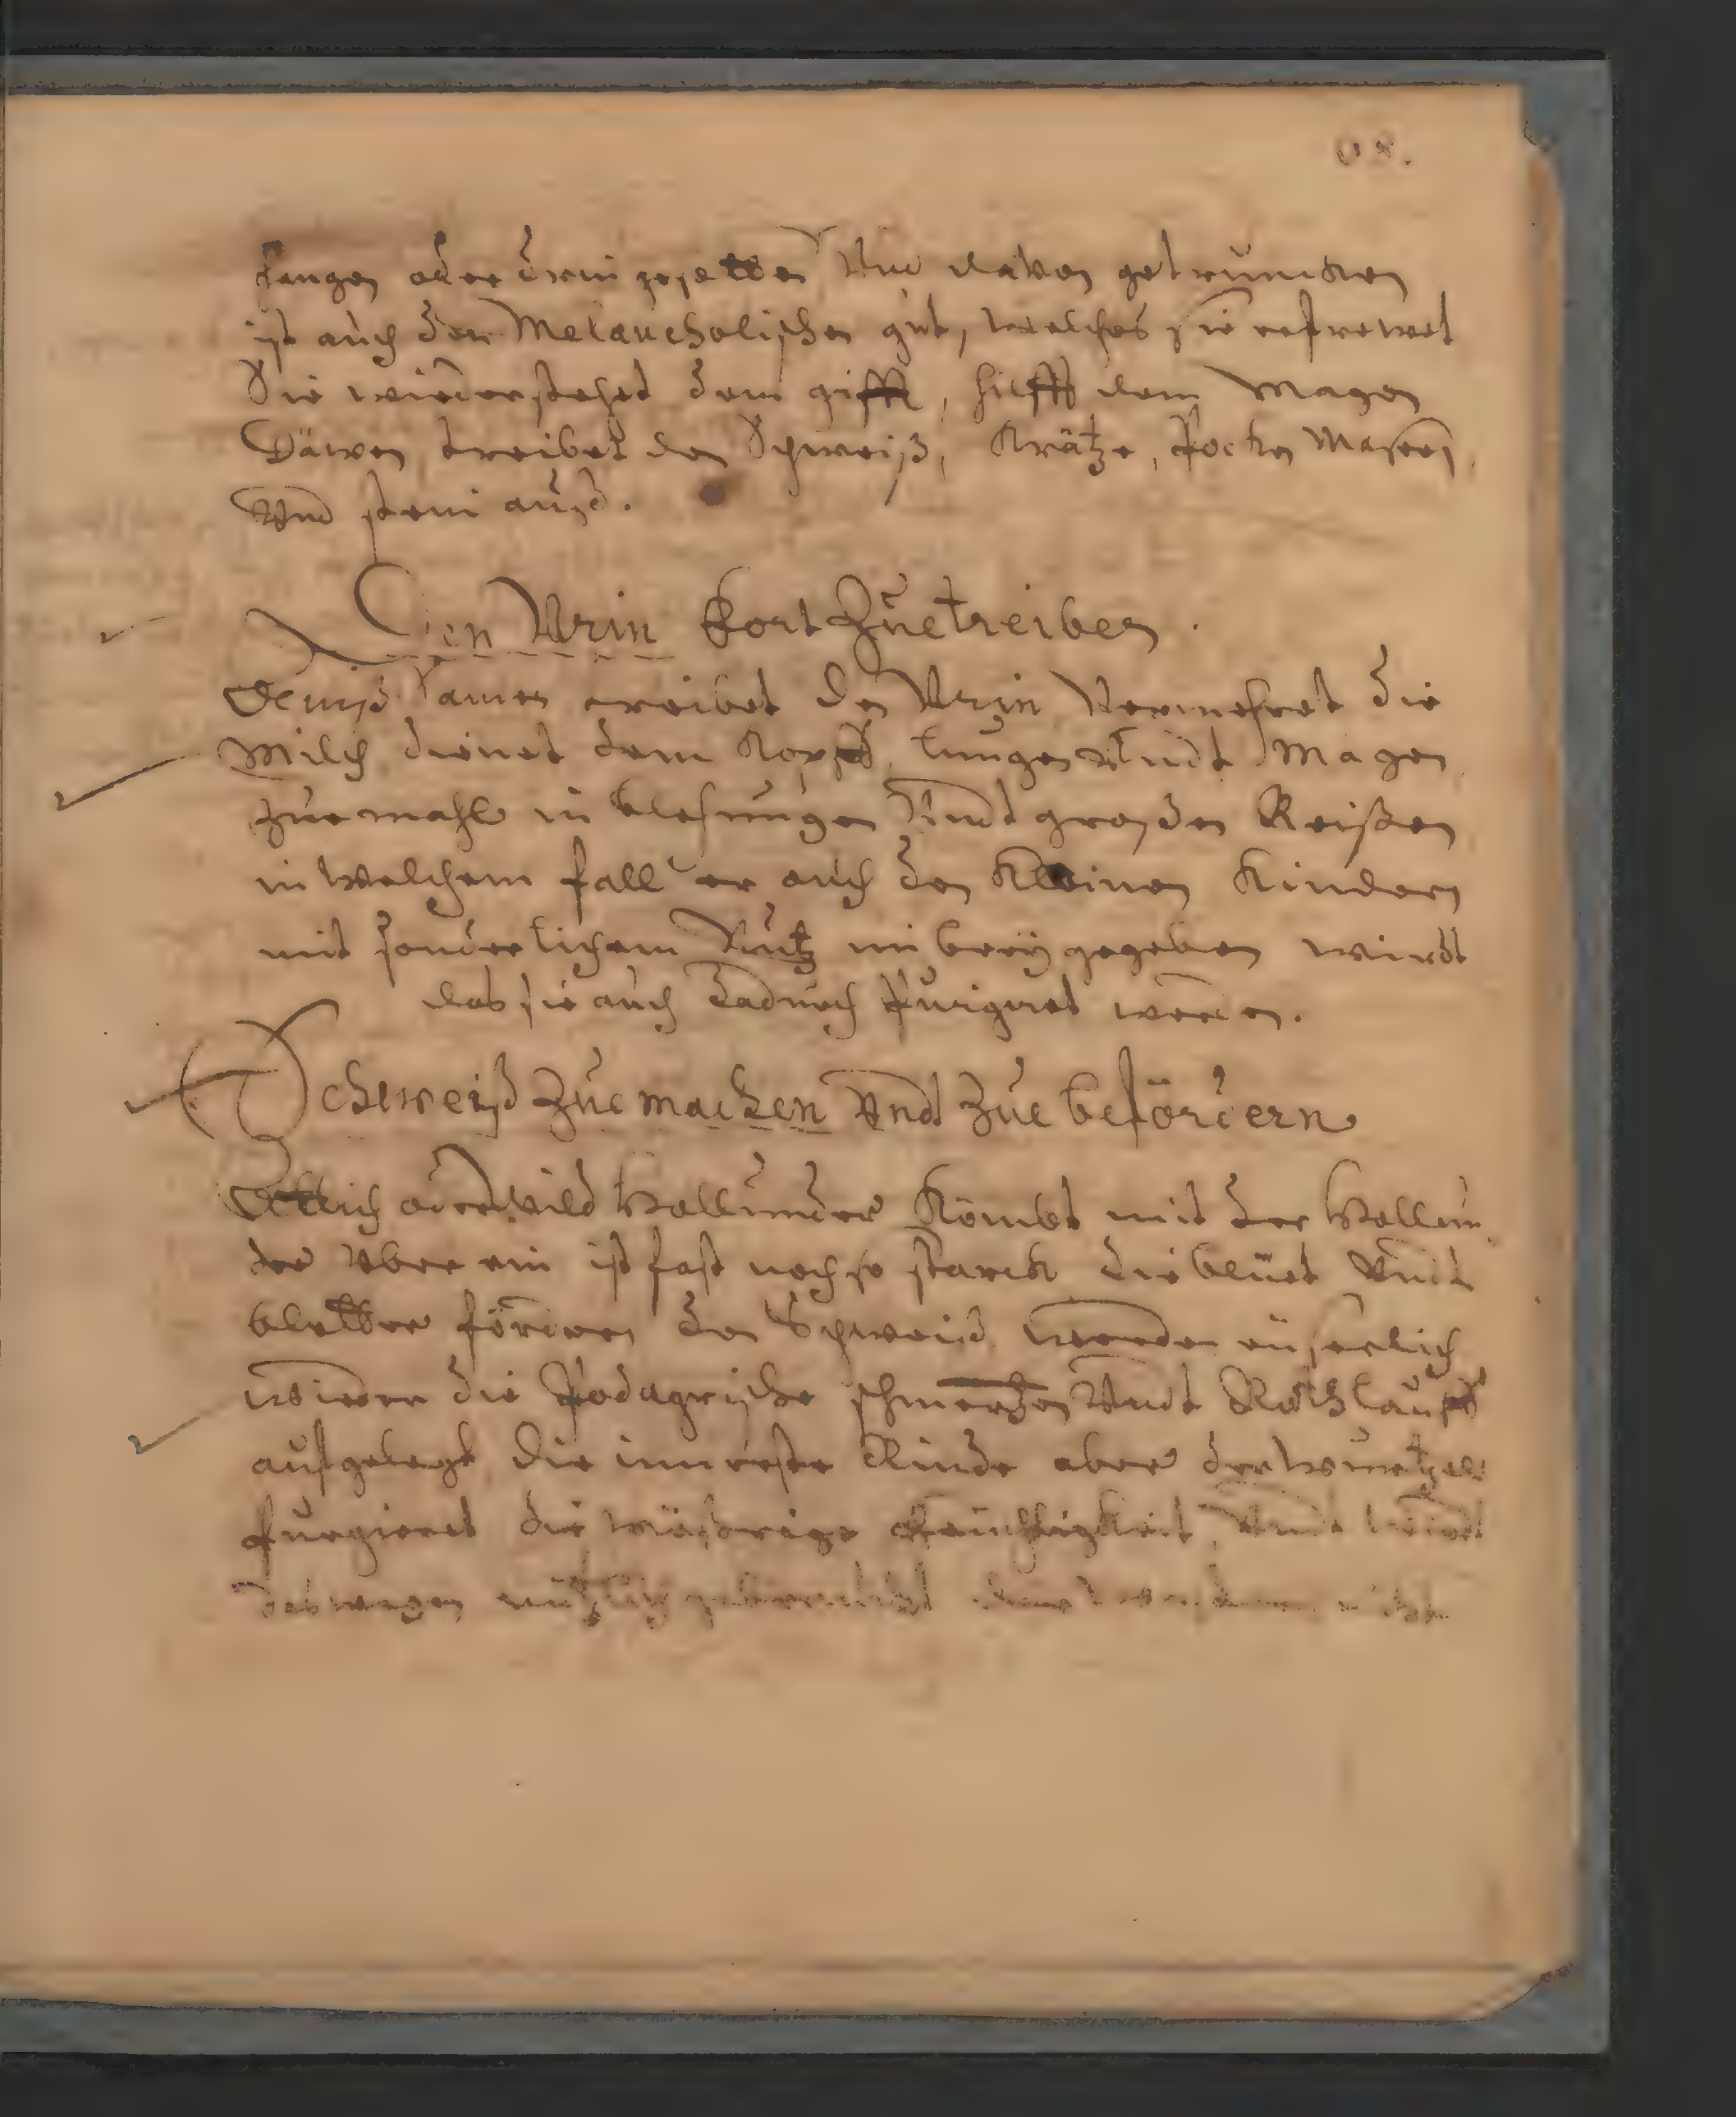 68.
hangen oder drin gesotten Vnd davon getruncken
ist auch den Melancholischen gut, welches sie erfrewet
Sie wiederstehet dem gifft, hilfft dem Magen
Däwen treibet den Schweiß, Krätze, Pocken Masern,
Vnd stein auß.
Den Vrin Fort Zue treiben.
Aniß Samen treibet den Vrin Vermehret die
Milch dienet dem Kopff, lungen Vndt Magen,
zuemahl in blehungen Vndt großen Reißen
in welchem fall er auch den Kleinen Kindern
mit sonderlichem Nutz im brey gegeben wirdt
das sie auch dadurch Purgiret werden.
Schweiß Zue machen Vnd Zue befördern
Attich oder Wild Hollunder Kömbt mit der Hollun
der Vber ein ist fast noch so starck die blüet Vndt
bletter fördern den Schweiß werden eüserlich
wieder die Podagrische schmertzen Vndt Rothlauff
aufgelegt, Die innerste Rinde aber der Wurtzel
Purgieret die wäßerige Feüchtigkeit, Vndt wird
deswegen nützlich gebraucht